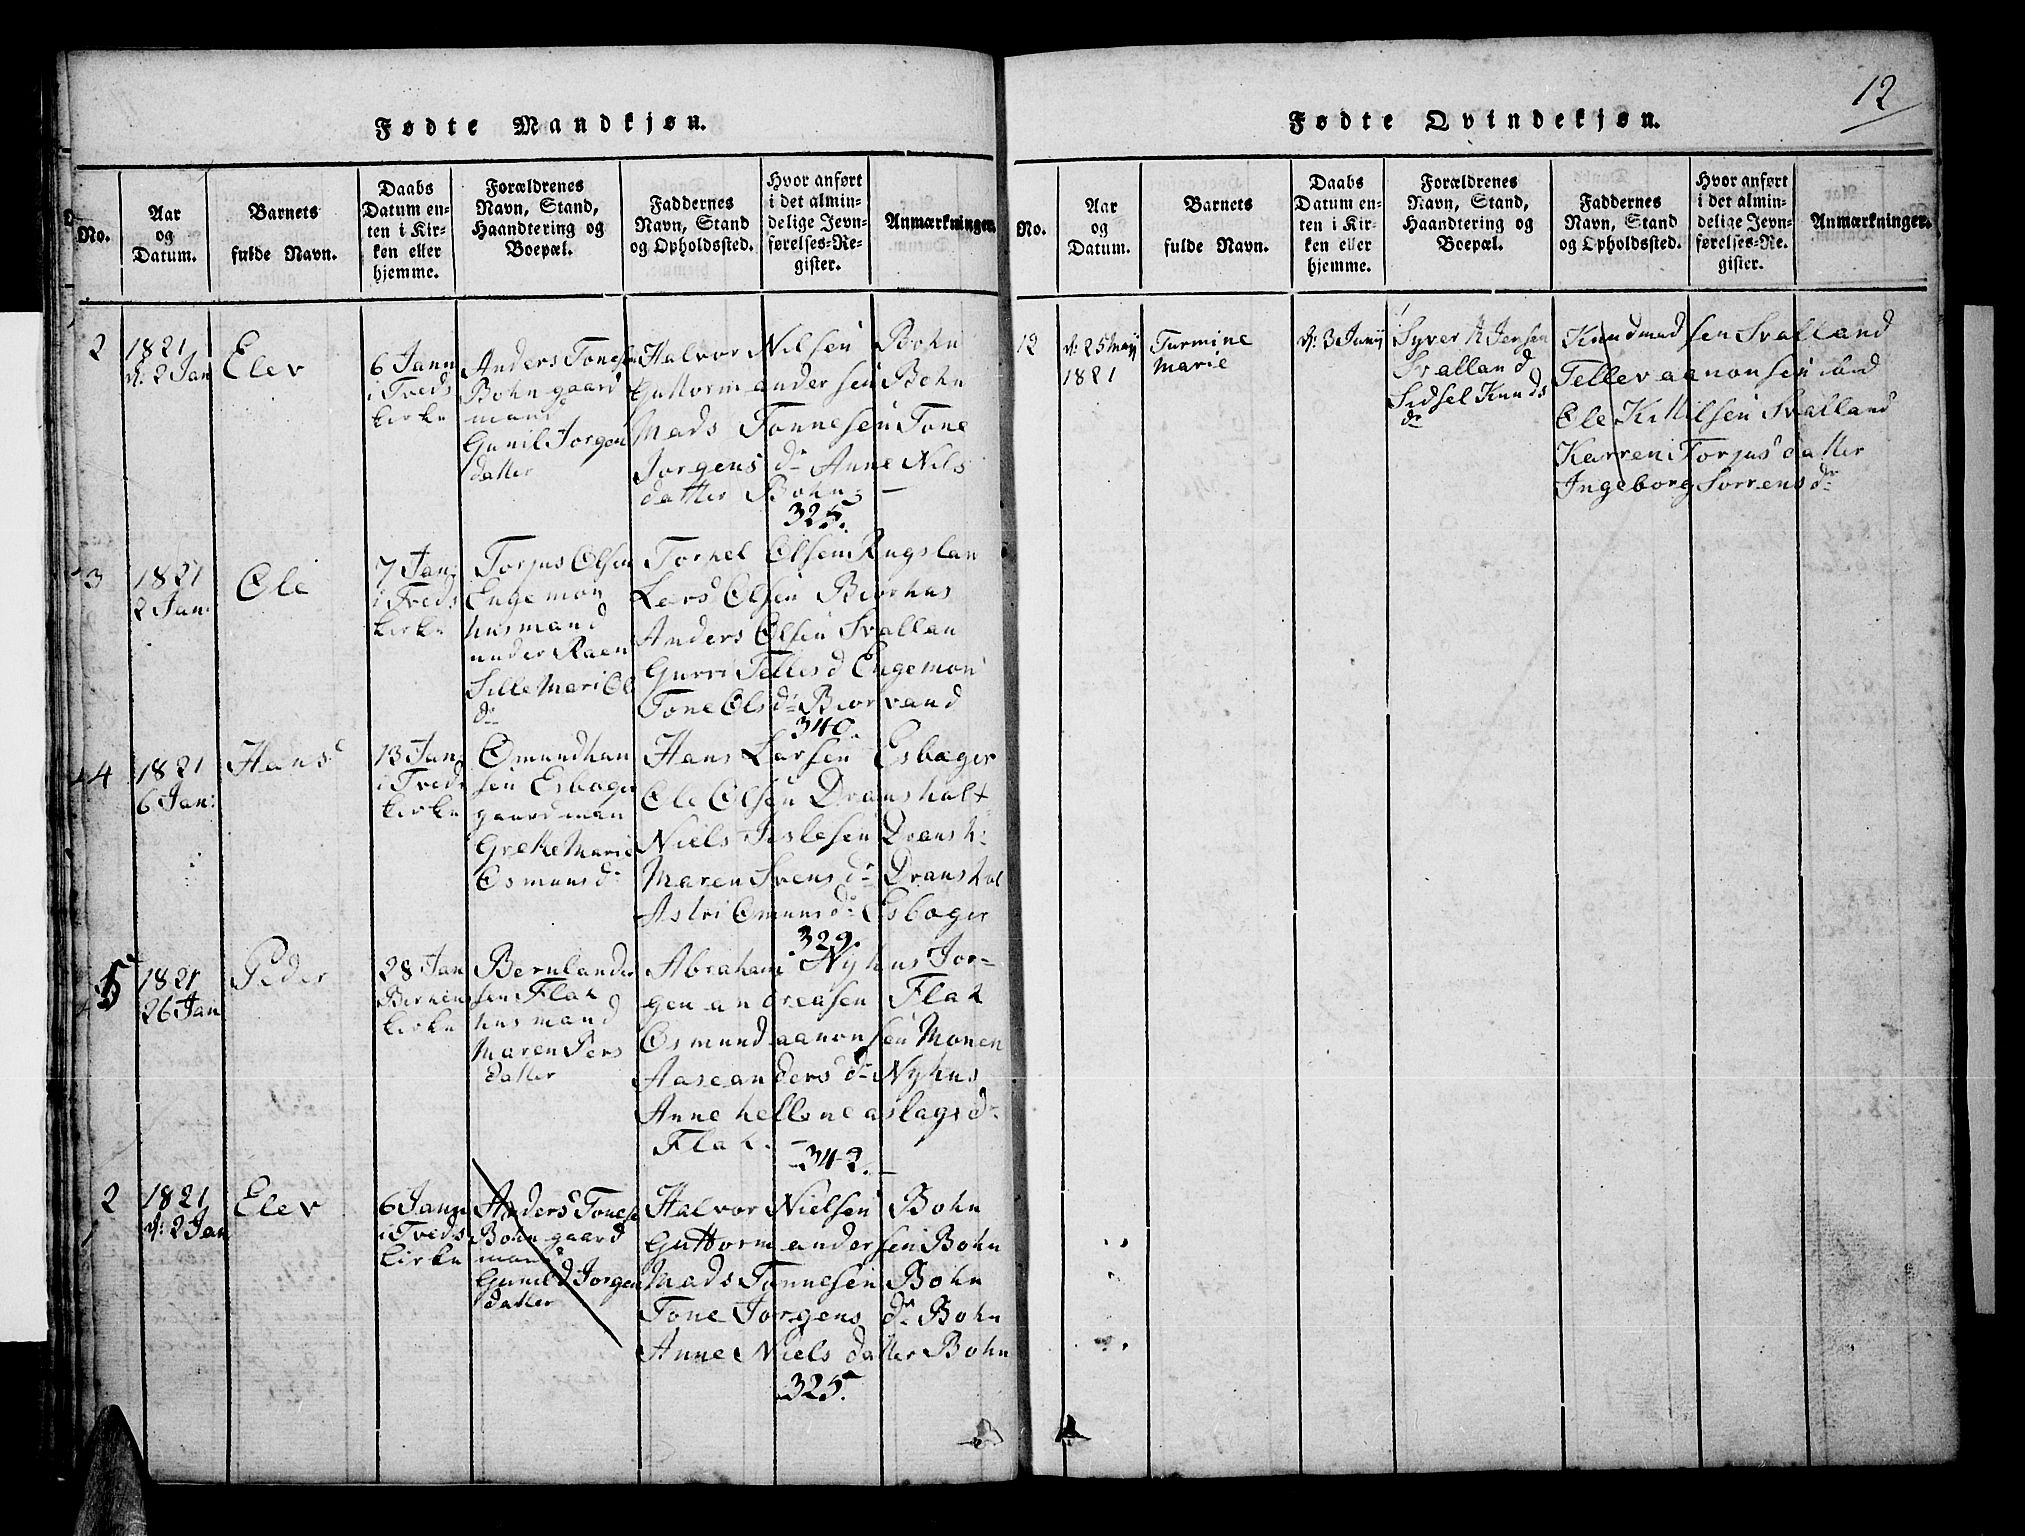 12
Fødte Mandkjøn.
No.
Aar
og
Datum.
Barnets
fulde Navn.
Daabs
Datum en-
ten i Kir-
ken eller
hjemme.
Forældrenes
Navn, Stand,
Haandtering og
Boepæl.
Faddernes
Navn, Stand
og Opholdssted.
Hvor anført
i det almin-
delige Jevn-
førelses-Re-
gister.
Anmærkninger.
2
1821
d: 2 Jan
Elev
6 Jann
i Treds
kirke
Anders Tonesen
Bohn gaard
mand
Gunil Jorgen
datter
Halvor Nilsen Bohn
Guttorm andersen Bohn
Mads Tonnesen Tone
Jorgens dr Anne Nils
datter Bohn
325.
3
1821
2 Jan:
Ole
7 Jan:
i Treds
kirke
Torjus Olsen
Engemon
husmand
under Raen
Sille Mari Ols
dr
Torkel Olsen Rugslan
Lars Olsen Biorhus
Anders Olsen Svallan
Gurri Telles d Engemon
Tone Ols dr Biorvand
340.
4
1821
6 Jan:
Hans
13 Jan
i Treds
kirke
Omund han
sen Esbager
gaardman
Grethe Marie
Osmuns dr
Hans Larsen Esbager
Ole Olsen Dransholt
Niels Terlesen Dransh:
Maren Svens dr Dranshol
Astri Omuns dr Esbager
329.
5
1821
26 Jan
Peder
28 Jan
Birkens
kirke
Bernt ander
sen Flak
husmand
Maren Pers
datter
Abraham Nyhus Jor-
gen andreasen Flak
Osmund aanonsen Monen
Aase anders dr Nyhus
Anne hellene aslags dr
Flak.
342.
2
1821
d: 2 Jan
Elev
6 Jann
i Treds
kirke
Anders Tonese
Bohn gaard
mand
Gunild Jorgen
datter
Halvor Nielsen Bohn
Guttorm andersen Bohn
Mads Tonnesen Bohn
Tone Jorgens dr Bohn
Anne Niels datter Bohn
325.
Fødte Qvindekjøn.
No.
Aar
og
Datum.
Barnets
fulde Navn.
Daabs
Datum en-
ten i Kir-
ken eller
hjemme.
Forældrenes
Navn, Stand,
Haandtering og
Boepæl.
Faddernes
Navn, Stand
og Opholdssted.
Hvor anført
i det almin-
delige Jevn-
førelses-Re-
gister.
Anmærkninger.
12
d: 25 May
1821
Turmine
Marie
d: 3 Juny
Syver Jensen
Svalland
Sidsel Knuds
dr
Knud madsen Svalland
Tellev aanonsen ibid
Ole Killsen Svalland
Karren Torjus datter
Ingeborg Sorrens dr